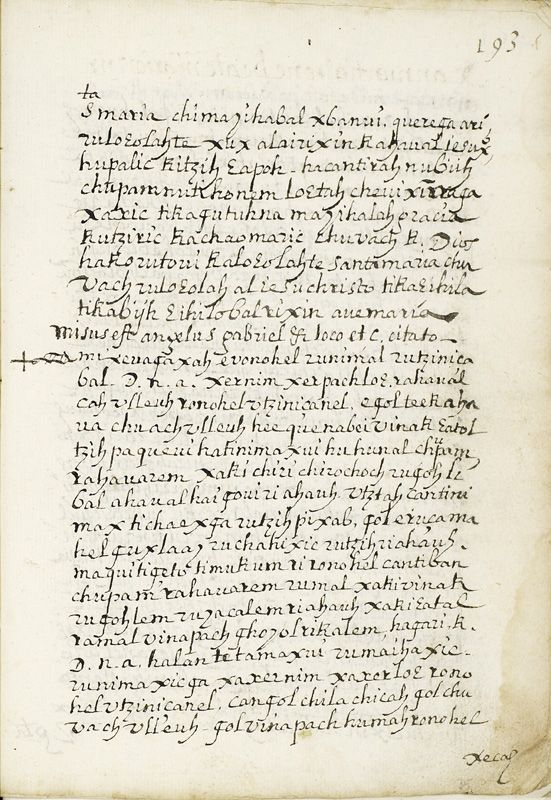 193
ta
S maria chimayihabal xbanvi. querega ari
ruloɛolahte xux alairixin kahaual Jesu xº
hupalic kitzih ɛapoh. hacantirah nubijh
chupam nutihonem loɛtah chevi xirraga
xaxic tikagutuhna mayihalah gracia
kutziric kachaomaric chuvach k. Dios
hakorutovi kaloɛolahte santa maria chu
vach ruloɛolah al iesu christo tikaɛihila
tikabijh ɛihilobal rixin auemaria
misus est angelus gabriel & loco et c, citato
mi xevaga xah evonohel runimal rutzinica
bal. D. n. a. xernim xerpach loɛ, rahaual
cah vlleuh ronohel vtzinicanel. egolteek aha
ua chu ach vlleuh hee que nabei vinak ɛatol
tzih paquevi hatinima xui huhunal chupam
rahauarem xaki chiri chirochoch rugohli
bal ahaual hai goviri ahauh. vtztah cantini
max tichaexga rutzih pixab, gol erucama
hel guxlaay ruchahixic rutzih ri ahauh.
maqui tigeto timukum ri ronohel cantiban
chupam rahauarem rumal xaki vinak
rugohlem ruyacalem ri ahauh xaki ɛatal
ramal vinapach ghoyol rikalem, hagari. k.
D. n. a. halan tetamaxui rumaihaxic.
runimaxicga xaxernim xaxerloɛ rono
hel vtzinicanel. can gol chila chicah gol chu
vach vlleuh - gol vinapach humah ronohel
xecah